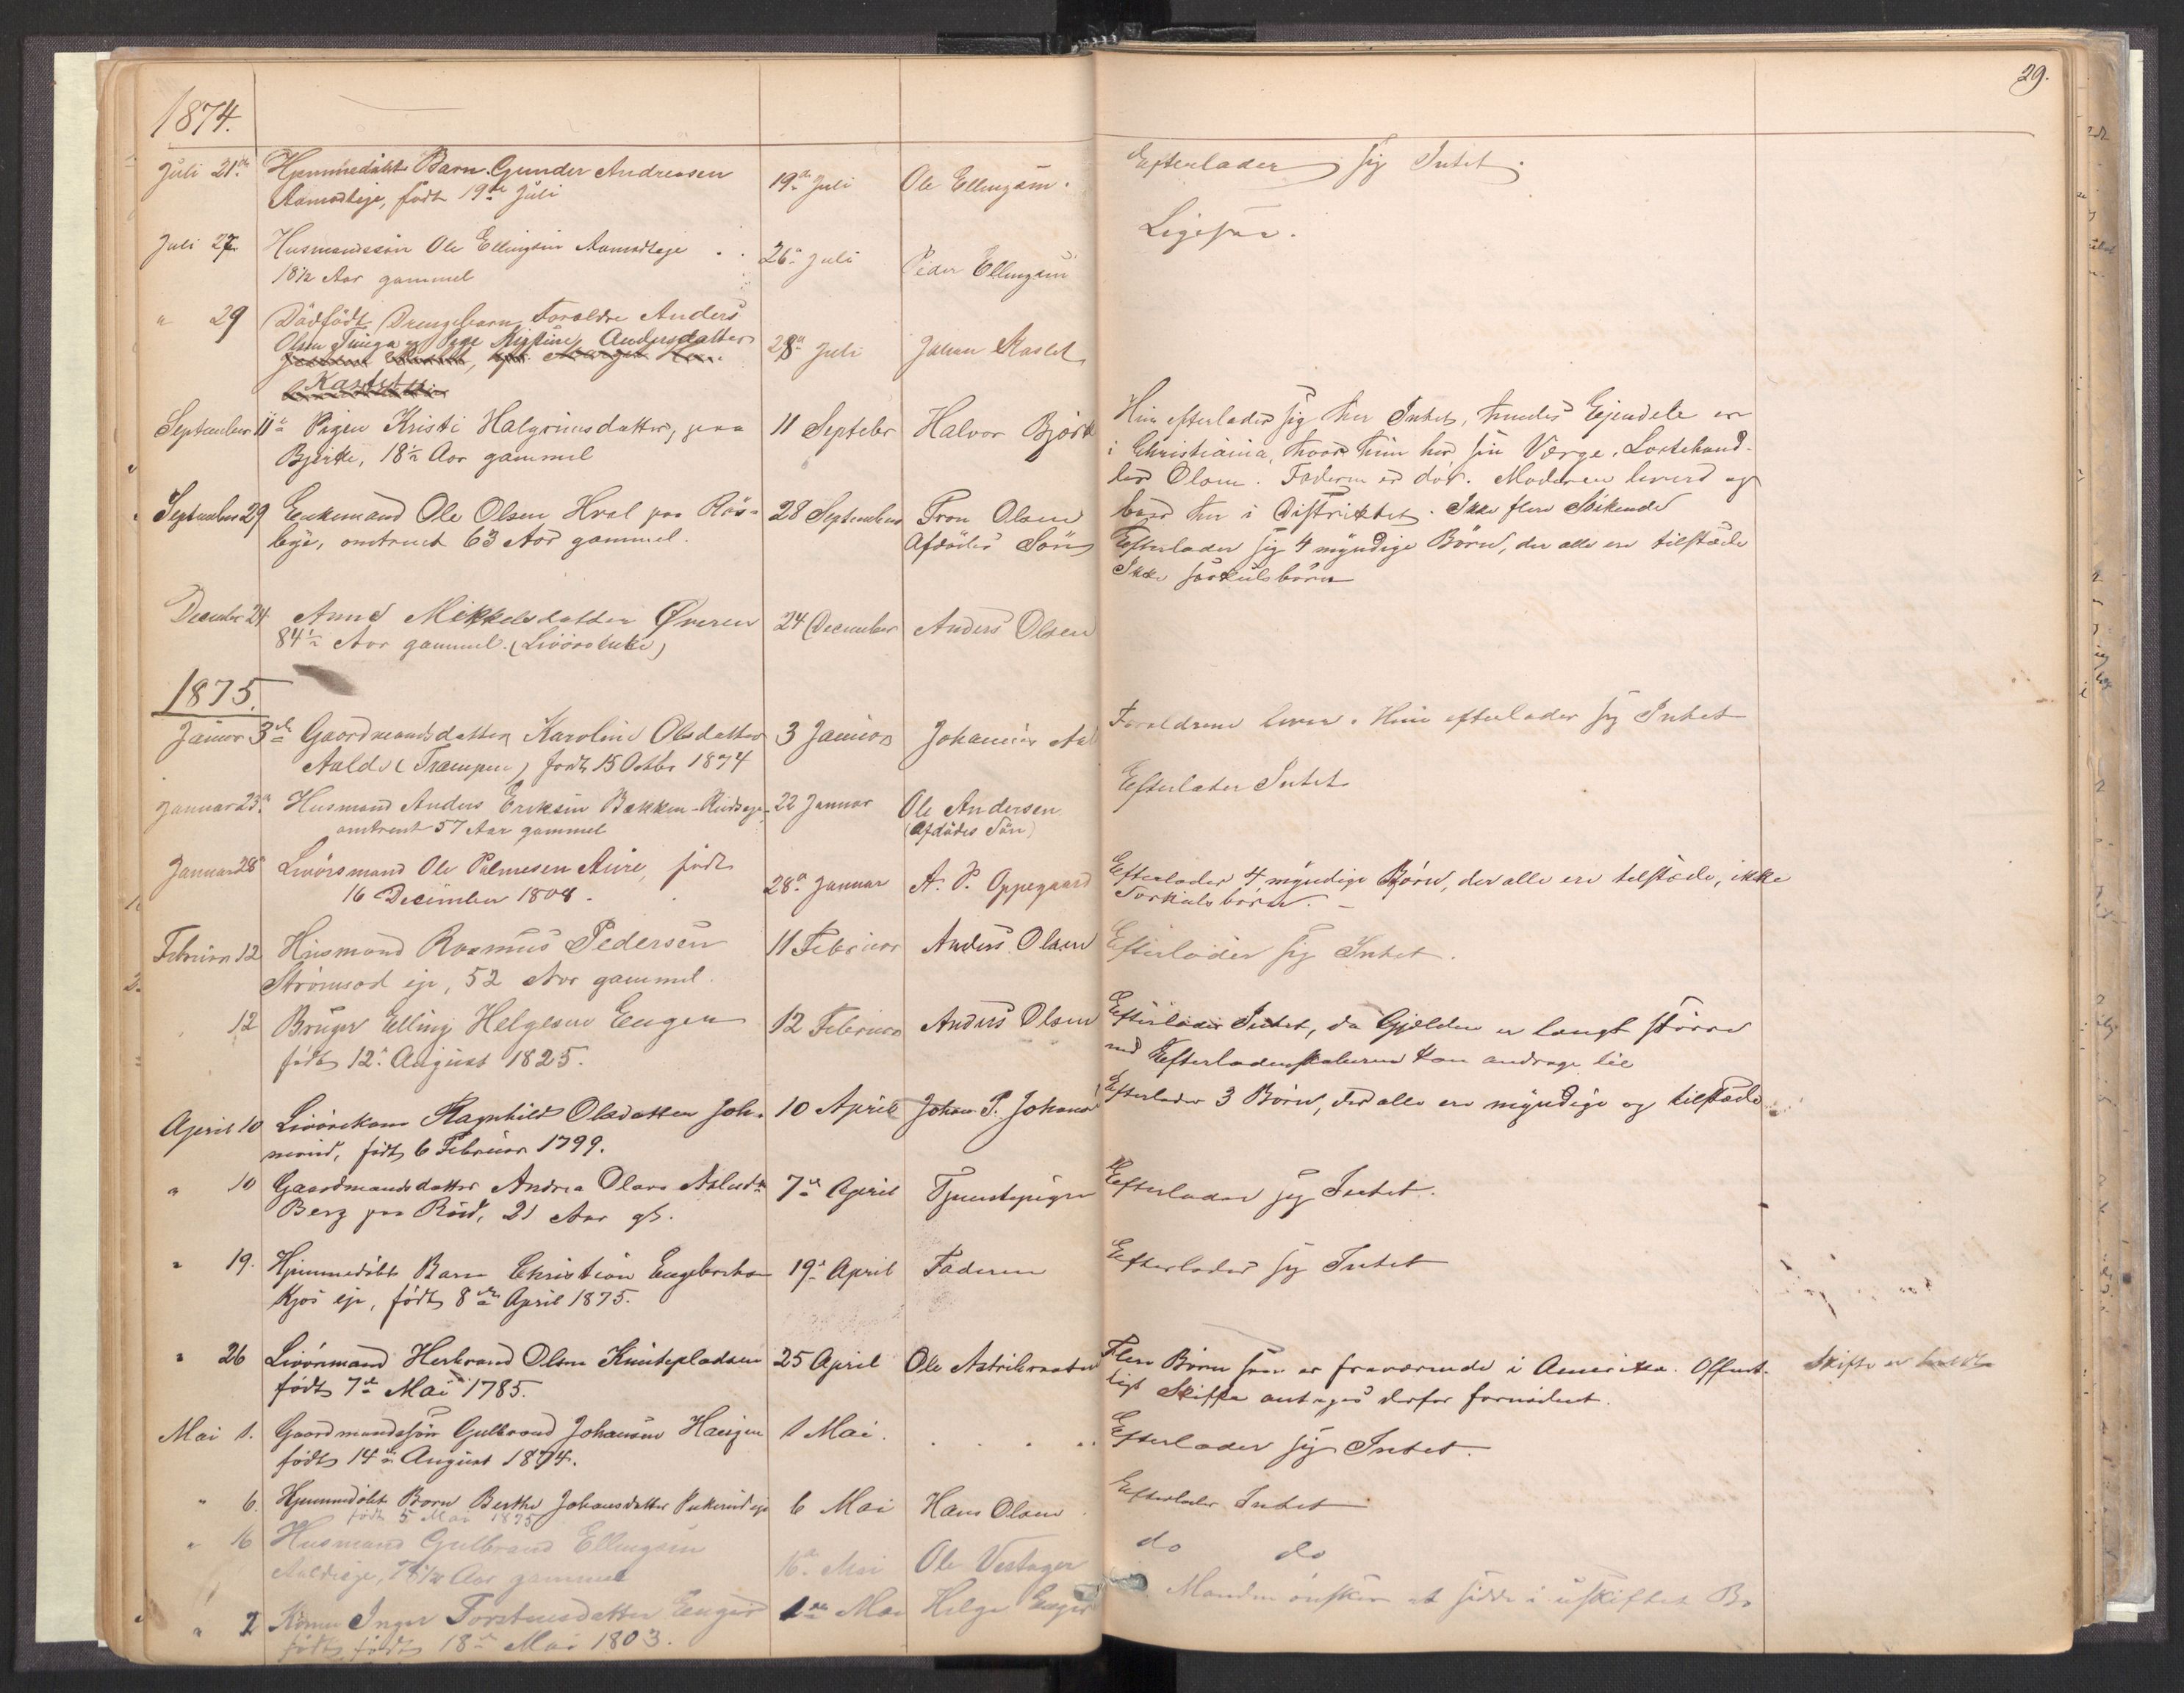 29.
1874.
Juli 21de Hjemmedöbt Barn Gunder Andreasen 19de Juli Ole Ellingsen. Efterlader sig Intet.
Aamodteje, født 19de Juli
Juli 27 Husmandssön Ole Ellingsen Aamodteje 26de Juli Peder Ellingsen Ligesaa.
18½ Aar gammel
" 29 Dödfödt Drengebarn, Foraldre Anders
Olsen og Pige Andersdatter 28de Juli Johan Kaslet
September 11te Pigen Kristi Halgrimsdatter, paa 11 Septebr Halvor Björk Hun efterlader sig her Intet, hendes Ejendele er
Bjerke, 18½ Aar gammel i Christiania, hvor hun har sin Værge,
Olsen. Faderen er död. Moderen lever og
September 29 Enkemand Ole Olsen Hval paa 28 September Tron Olsen her i Distriktet. Ikke flere Söskende
leje, omtrent 63 Aar gammel. Afdödes Sön Efterlader sig 4 myndige Börn, der alle ere tilstæde
Ikke særkulsbörn
December 24 Anne Mikkelsdatter Øveren 24 December Anders Olsen
84½ Aar gammel.
1875.
Januar 3de Gaardmandsdatter Karoline Olsdatter 3 Januar Johannes Forældrene lever. Hun efterlader sig Intet
(Trampen) født 15 Octbr 1874
Januar 23de Husmand Anders Eriksen Bakken 22 Januar Ole Andersen Efterlader Intet
omtrent 57 Aar gammel (Afdödes Sön)
Januar 28de Ole Palmesen Aure, født 28de Januar A. P. Oppegaard Efterlader 4 myndige Börn, der alle ere tilstæde, ikke
16 December 1808. Særkulsbörn.
Februar 12 Husmand Rasmus Pedersen 11 Februar Anders Olsen Efterlader sig Intet.
Strömsod eje, 52 Aar gammel.
12 Bruger Elling Helgesen Engen 12 Februar Anders Olsen Efterlader Intet, da Gjælden er langt större
født 12te August 1825. end Efterladenskaberne kan andrage til
April 10 Livörekone Ragnhild Olsdatter Joh- 10 April Johan P. Efterlader 3 Börn, der alle ere myndige og tilstæde
født 6 Februar 1799.
" 10 Gaardmandsdatter Andrea Olava 7de April Tjenestepigen Efterlader sig Intet.
Berg paa Rud, 21 Aar gl.
" 19. Hjemmedöbt Barn Christian Engebretsen 19de April Faderen Efterlader sig Intet
Kjos eje, født 8de April 1875.
" 26 Livörmand Herbrand Olsen Knutepladsen 25 April Ole Flere Börn som er fraværende i Amerika. Offent- Skifte er holdt
født 7de Mai 1785. ligt Skifte antages derfor fornödent.
Mai 1. Gaardmandssön Gulbrand Johansen Haugen 1 Mai. . . . . Efterlader sig Intet.
født 14de August 1874.
" 6. Hjemmedöbt Barn Berthe Johansdatter 6 Mai Hans Olsen Efterlader Intet
født 5 Mai 1875
" 16 Husmand Gulbrand Ellingsen 16de Mai Ole Vestager do do
Aar gammel
" 2 Konen Inger Torstensdatter Enger 1ste Mai Helge Enger Manden önsker at sidde i uskiftet Bo
født født 18de Mai 1803.